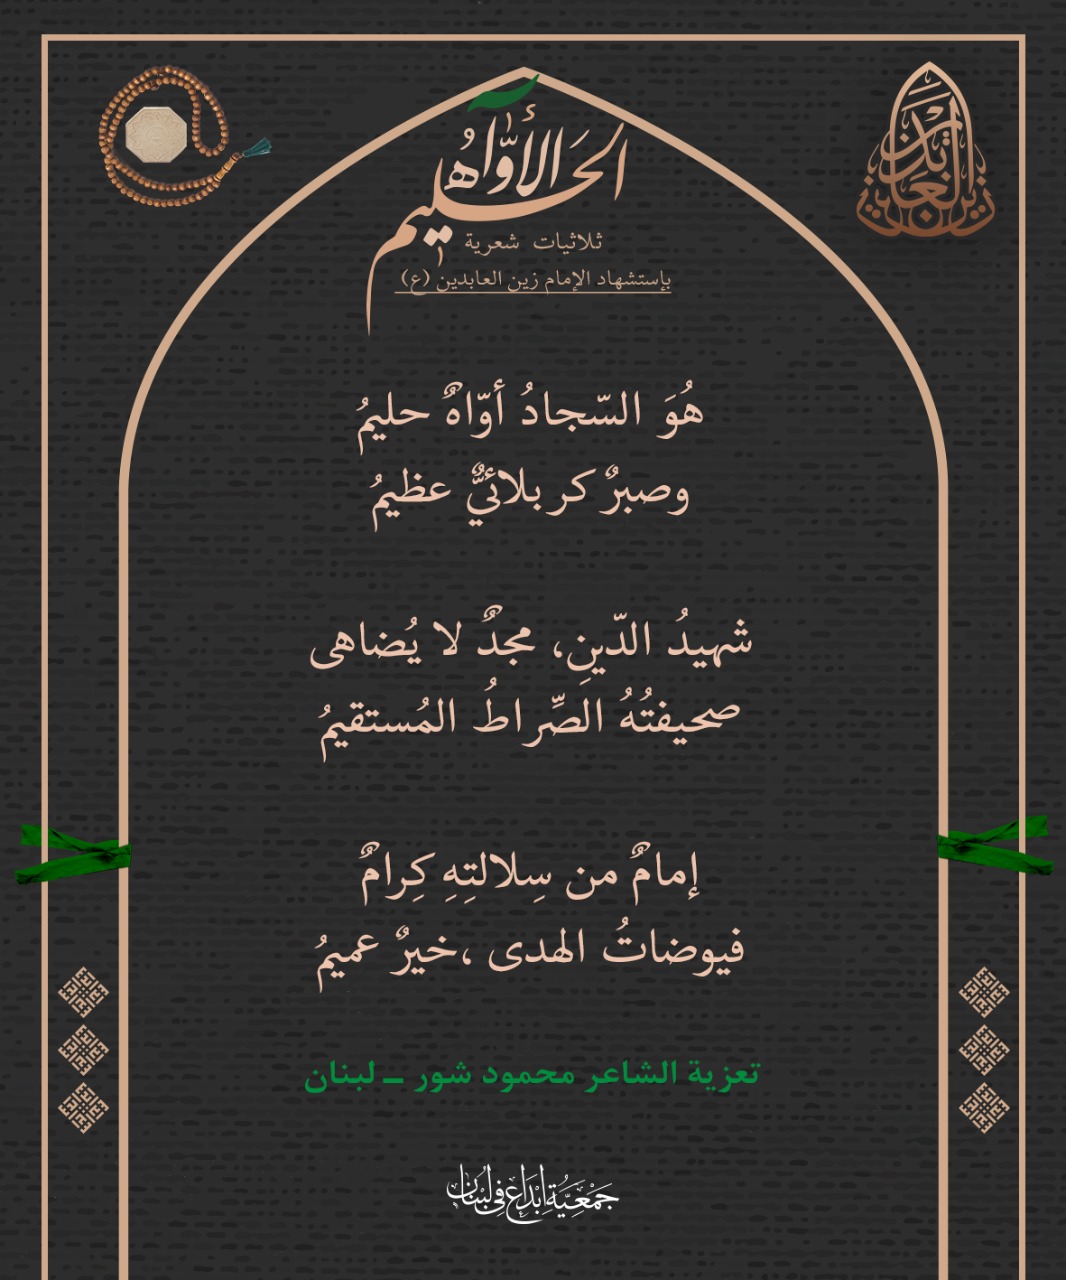 زين العابدين
الأوّاه الحليم
ثلاثيات شعرية
بإستشهاد الإمام زين العابدين (ع)
هُوَ السّجادُ أوّاهٌ حليمُ
وصبرٌ كربلائيٌّ عظيمُ
شهيدُ الدّينِ، مجدٌ لا يُضاهى
صحيفتُهُ الصِّراطُ المُستقيمُ
إمامٌ من سِلالتِهِ كِرامٌ
فيوضاتُ الهدى ،خيرٌ عميمُ
تعزية الشاعر محمود شور – لبنان
جَمْعِيَّةُ إبْدَاع فِي لُبْنَان